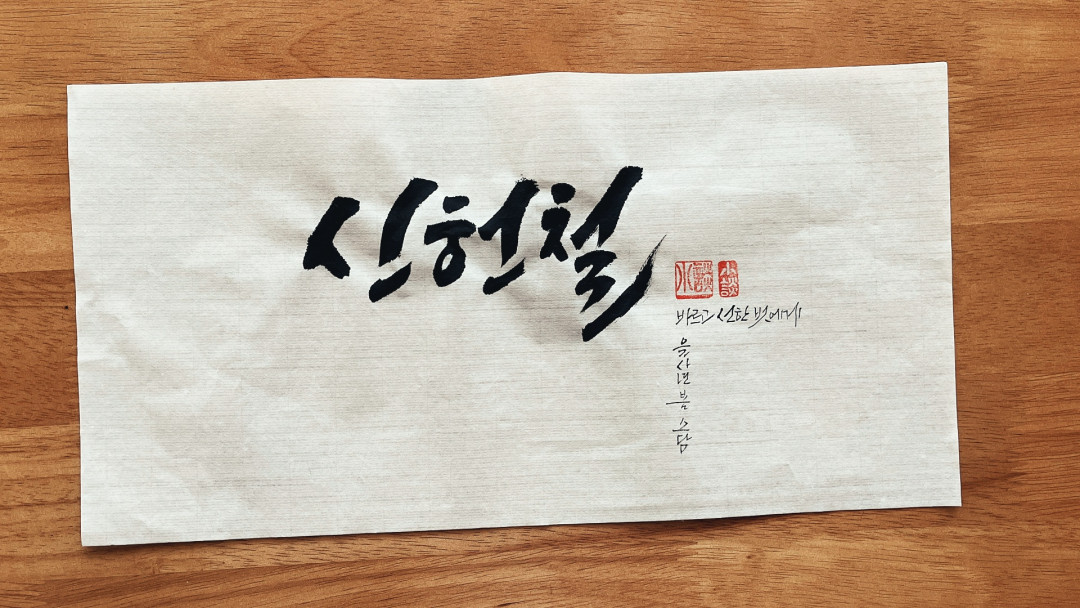 신헌철
바르고 선한 벗에게
을사년 봄 소담